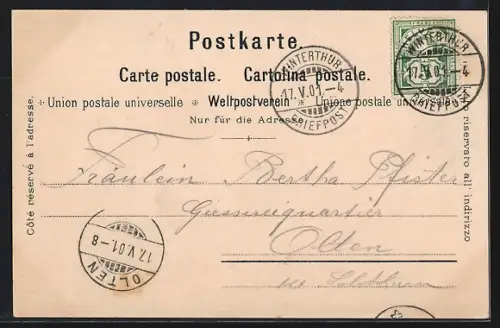 Postkarte.
Carte postale. Cartolina postale.
* Union postale universelle * Weltpostverein * Unione postale universale *
Nur für die Adresse
Côté réservé à l'adresse.
Lato riservato all' indirizzo
WINTERTHUR
17.V.01.-4
BRIEFPOST
WINTERTHUR
17.V.01.-4
BRIEFPOST
Fräulein Bertha Pfister
Giessereiquartier
Olten
Solothurn
17.V.01.-8
OLTEN